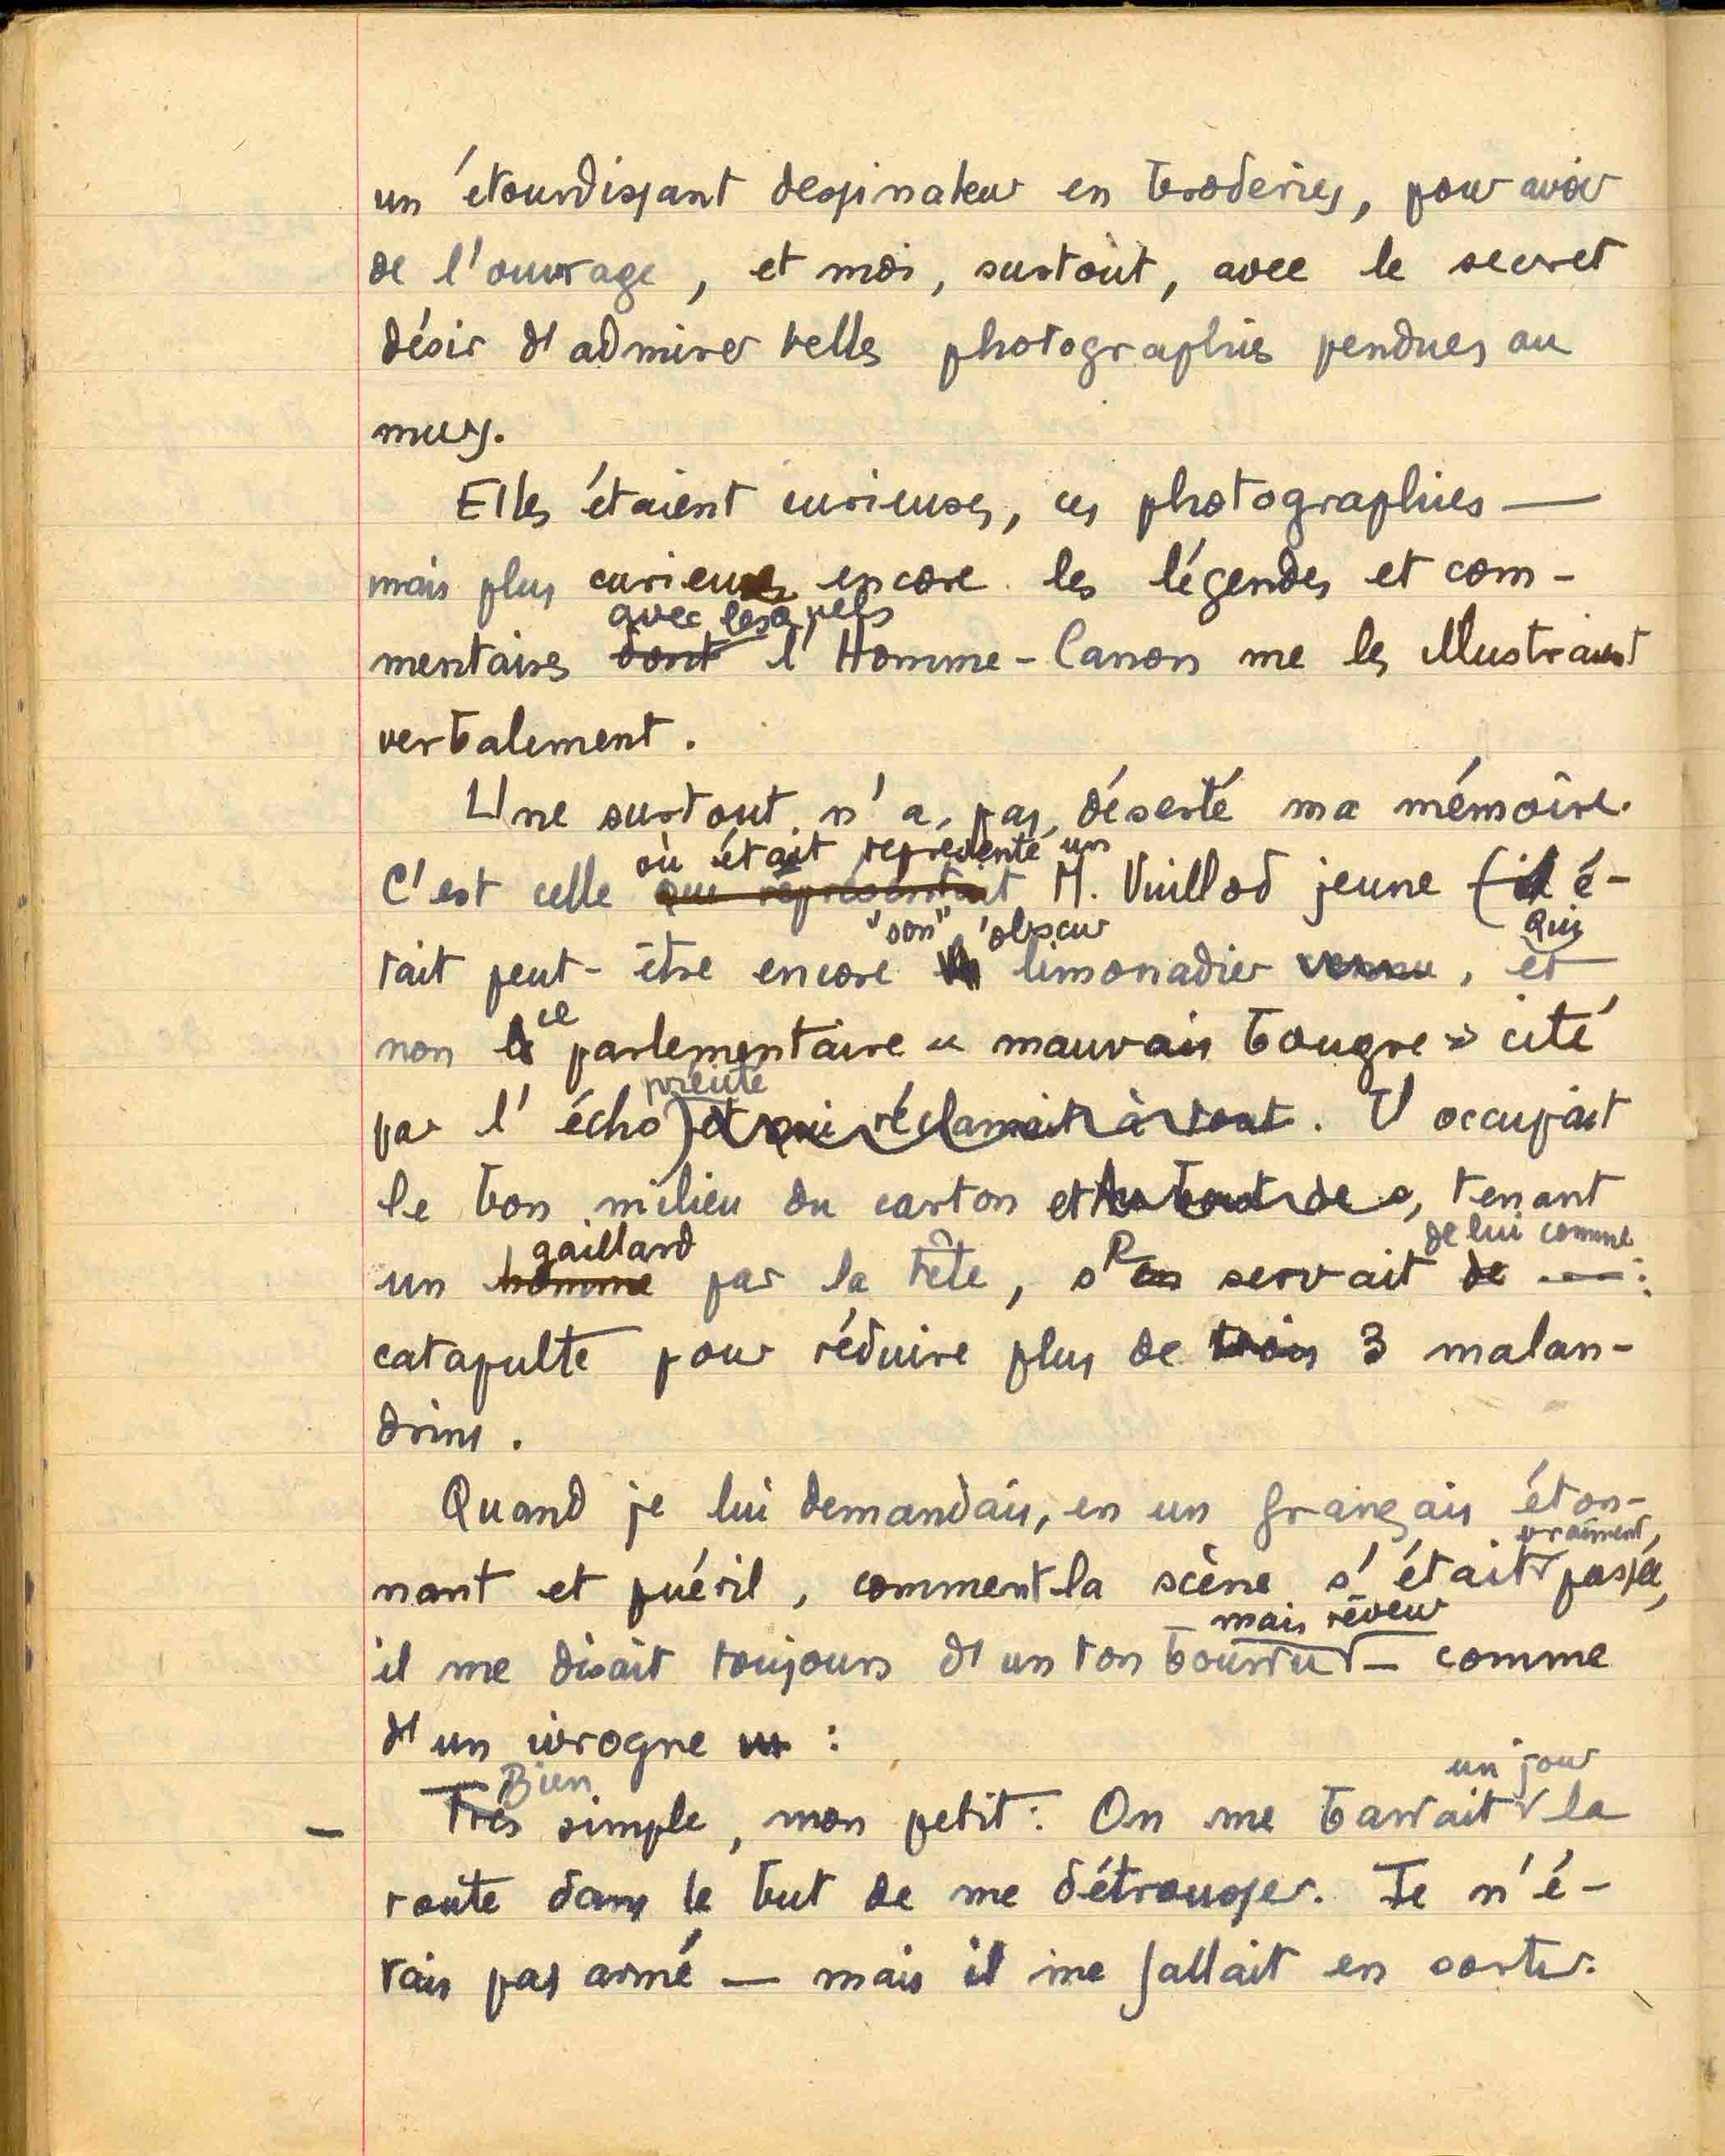 un étourdissant dessinateur en broderies, pour avoir
de l'ouvrage, et moi, surtout, avec le secret
désir d'admirer telles photographies pendues au
murs.
Elles étaient curieuses, ces photographies —
mais plus curieuses encore les légendes et com-
avec lesquels
mentaires dont l'Homme-Canon me les illustrait
verbalement.
Une surtout n'a pas déserté ma mémoire.
où était représenté un
C'est celle qui représentait M. Vuillod jeune (il é-
"son" obscur qui
tait peut-être encore limonadier, et
ce
non le parlementaire « mauvais bougre » cité
précité
par l'écho) et qui réclamait à tout. Il occupait
le bon milieu du carton et, tenant
gaillard de lui comme
un homme par la tête, s'en servait de
catapulte pour réduire plus de trois 3 malan-
drins.
Quand je lui demandais, en un français éton-
vraiment,
nant et puéril, comment la scène s'était passée,
mais rêveur
il me disait toujours d'un ton bourru — comme
d'un ivrogne :
Bien un jour
— Très simple, mon petit : On me barrait la
route dans le but de me détrousser. Je n'é-
tais pas armé — mais il me fallait en sortir.